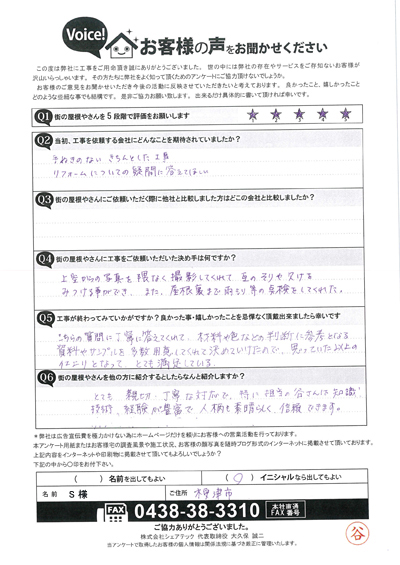 Voice! お客様の声をお聞かせください
この度は弊社に工事をご用命頂き誠にありがとうございました。世の中には弊社の存在やサービスをご存知ないお客様が
沢山いらっしゃいます。その方たちに弊社をよく知って頂くためのアンケートにご協力頂けないでしょうか。
お客様のご意見をお聞かせいただき今後の活動に反映させていただきたいと考えております。良かったこと、嬉しかったこと
どのような些細な事でも結構です。是非ご協力お願い致します。出来るだけ具体的に書いて頂ければ幸いです。
Q1 街の屋根やさんを5段階で評価をお願いします
1 2 3 4 5
Q2 当初、工事を依頼する会社にどんなことを期待されていましたか?
手ぬきのない きちんとした工事
リフォームについての疑問に答えてほしい
Q3 街の屋根やさんにご依頼いただく際に他社と比較しました方はどこの会社と比較しましたか?
Q4 街の屋根やさんに工事をご依頼いただいた決め手は何ですか?
上空からの写真を隈なく撮影してくれて、瓦のそりや欠けを
みつける事ができ、また、屋根裏まで雨もり等の点検をしてくれた。
Q5 工事が終わってみていかがですか?良かった事・嬉しかったことを忌憚なく頂戴出来ましたら幸いです
こちらの質問に丁寧に答えてくれて、材料や色などの判断に参考となる
資料やサンプルを多数用意してくれて決めていけたので、思っていた以上の
仕上りとなって、とても満足している。
Q6 街の屋根やさんを他の方に紹介するとしたらなんと紹介しますか?
とても親切・丁寧な対応で、特に担当の谷さんは知識・
技術・経験が豊富で人柄も素晴らしく、信頼できます。
*弊社は広告宣伝費を極力かけない為にホームページだけを頼りにお客様への営業活動を行っております。
本アンケート用紙またはお客様宅の調査風景や施工状況、お客様の顔写真を随時ブログ形式のインターネットに掲載させて頂いております。
上記内容をインターネットや印刷物に掲載させて頂いてもよろしいでしょうか?
下記の中から〇印をお付下さい。
( )名前を出してもよい (○)イニシャルなら出してもよい
名前 S様 ご住所 木更津市
FAX 0438-38-3310 本社直通 FAX番号
ご協力ありがとうございました。
株式会社シェアテック 代表取締役 大久保 誠二
当アンケートで取得したお客様の個人情報は関係法規に基づき厳正に管理いたします。
谷